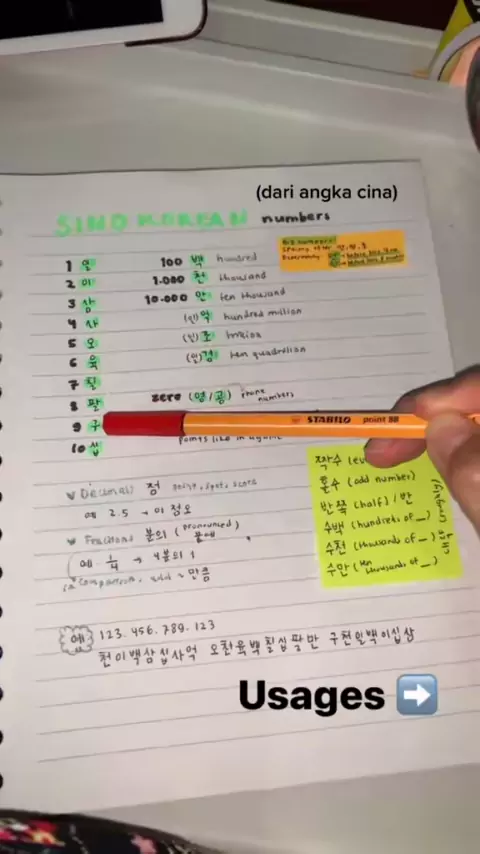 (dari angka cina)
SINO KOREAN numbers
1 일
2 이
3 삼
4 사
5 오
6 육
7 칠
8 팔
9 구
10 십
100 백 hundred
1.000 천 thousand
10.000 만 ten thousand
억 hundred million
조
경 ten quadrillion
zero (영/공) Phone numbers
Big numbers:
STABILO point 88
points like in
짝수
홀수 (odd number)
반쪽 (half) / 반
수백 (hundreds of _)
수천 (thousands of _)
수만 (ten thousands of _)
Decimal: 점 point, spot, score
예 2.5 → 이 점 오
Fractions 분의 (pronounced) 분에
예. 1/4 → 4분의 1
만큼
예 123.456.789.123
천이백삼십사억 오천육백칠십팔만 구천일백이십삼
Usages ➡